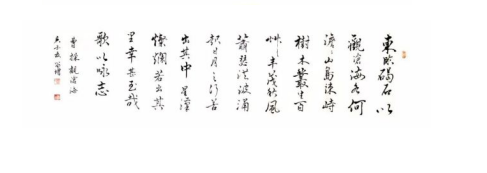 東臨碣石以
觀滄海水何
澹〻山島竦峙
樹木叢生百
艸丰茂秋風
蕭瑟洪波涌
起日月之行若
出其中星漢
燦爛若出其
里幸甚至哉
歌以咏志
曹操觀滄海